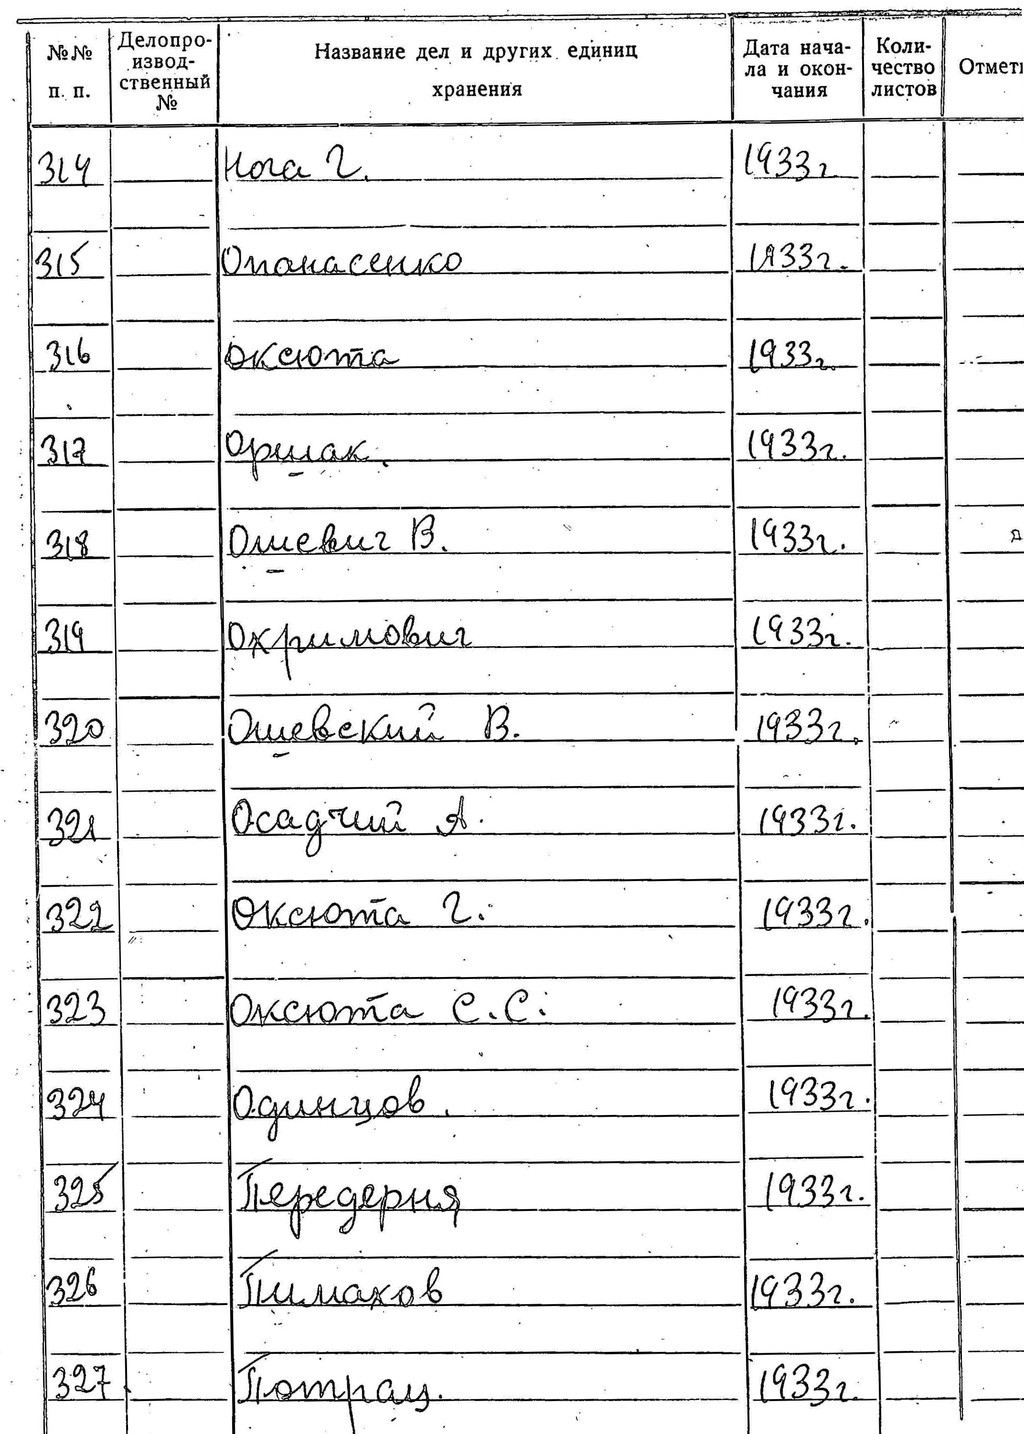 №№ п. п. Делопро-извод-ственный № Название дел и других единиц хранения Дата нача-ла и окон-чания Коли-чество листов Отмет
314 Нога Г. 1933г.
315 Опанасенко 1933г.
316 Оксюта 1933г.
317 Оршак. 1933г.
318 Ошевич В. 1933г.
319 Охримович 1933г.
320 Ошевский В. 1933г.
321 Осадчий А. 1933г.
322 Оксюта Г. 1933г.
323 Оксюта С.С. 1933г.
324 Одинцов. 1933г.
325 Передерня 1933г.
326 Пимахов 1933г.
327 1933г.